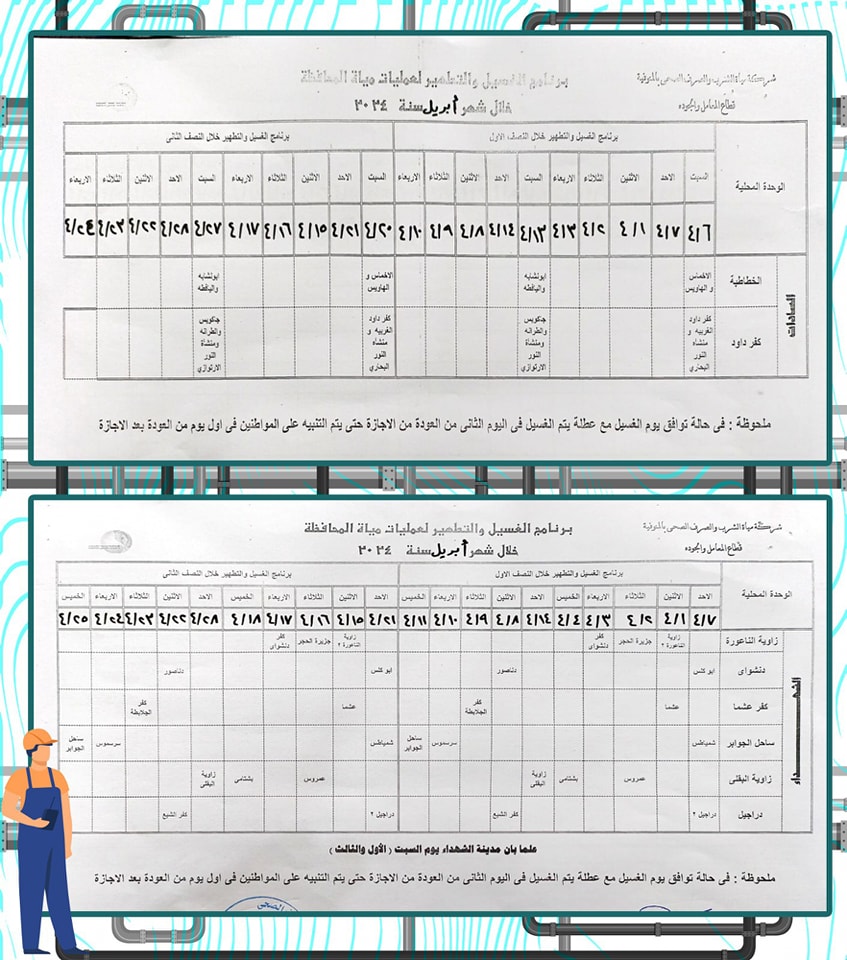 شركة مياة الشرب والصرف الصحى بالمنوفية
قطاع المعامل والجوده
برنامج الغسيل والتطهير لعمليات مياة المحافظة
خلال شهر أبريل سنة ٢٠٢٤
الوحدة المحلية
برنامج الغسيل والتطهير خلال النصف الاول
برنامج الغسيل والتطهير خلال النصف الثانى
السبت الاحد الاثنين الثلاثاء الاربعاء السبت الاحد الاثنين الثلاثاء الاربعاء السبت الاحد الاثنين الثلاثاء الاربعاء السبت الاحد الاثنين الثلاثاء الاربعاء
٤/٦ ٤/٧ ٤/١ ٤/٢ ٤/٣ ٤/١٣ ٤/١٤ ٤/٨ ٤/٩ ٤/١٠ ٤/٢٠ ٤/٢١ ٤/١٥ ٤/١٦ ٤/١٧ ٤/٢٧ ٤/٢٨ ٤/٢٢ ٤/٢٣ ٤/٢٤
السادات
الخطاطبة
الاخماس و الهاويس
ابونشابه والياقطه
الاخماس و الهاويس
ابونشابه والياقطه
كفر داود
كفر داود الغربيه و منشاه النور البحاري
جاكويس والطرانه ومنشأة النور الارتوازي
كفر داود الغربيه و منشاه النور البحاري
جاكويس والطرانه ومنشأة النور الارتوازي
ملحوظة : فى حالة توافق يوم الغسيل مع عطلة يتم الغسيل فى اليوم الثانى من العودة من الاجازة حتى يتم التنبيه على المواطنين فى اول يوم من العودة بعد الاجازة
شركة مياة الشرب والصرف الصحى بالمنوفية
قطاع المعامل والجوده
برنامج الغسيل والتطهير لعمليات مياة المحافظة
خلال شهر أبريل سنة ٢٠٢٤
الوحدة المحلية
برنامج الغسيل والتطهير خلال النصف الاول
برنامج الغسيل والتطهير خلال النصف الثانى
الاحد الاثنين الثلاثاء الاربعاء الخميس الاحد الاثنين الثلاثاء الاربعاء الخميس الاحد الاثنين الثلاثاء الاربعاء الخميس الاحد الاثنين الثلاثاء الاربعاء الخميس
٤/٧ ٤/١ ٤/٢ ٤/٣ ٤/٤ ٤/١٤ ٤/٨ ٤/٩ ٤/١٠ ٤/١١ ٤/٢١ ٤/١٥ ٤/١٦ ٤/١٧ ٤/١٨ ٤/٢٨ ٤/٢٢ ٤/٢٣ ٤/٢٤ ٤/٢٥
الشهداء
زاوية الناعورة
زاوية الناعورة ٢ جزيرة الحجر كفر دنشواى زاوية الناعورة ٢ جزيرة الحجر كفر دنشواى
دنشواى
ابو كلس دناصور ابو كلس دناصور
كفر عشما
عشما كفر الجلابطة عشما كفر الجلابطة
ساحل الجوابر
شمياطس سرسموس ساحل الجوابر شمياطس سرسموس ساحل الجوابر
زاوية البقلى
عمروس بشتامى زاوية البقلى عمروس بشتامى زاوية البقلى
دراجيل
دراجيل ٢ كفر الشبع دراجيل ٢ كفر الشبع
علما بان مدينة الشهداء يوم السبت ( الأول والثالث )
ملحوظة : فى حالة توافق يوم الغسيل مع عطلة يتم الغسيل فى اليوم الثانى من العودة من الاجازة حتى يتم التنبيه على المواطنين فى اول يوم من العودة بعد الاجازة